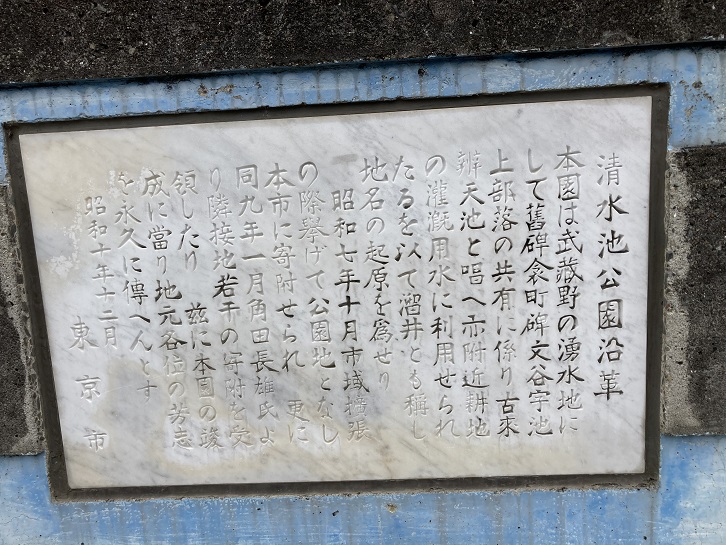 清水池公園沿革
本園は武蔵野の湧水地に
して舊碑衾町碑文谷字池
上部落の共有に係り古來
辨天池と唱へ亦附近耕地
の灌漑用水に利用せられ
たるを以て溜井とも稱し
地名の起原を爲せり
昭和七年十月市域擴張
の際挙げて公園地となし
本市に寄附せられ更に
同九年一月角田長雄氏よ
り隣接地若干の寄附を受
領したり 茲に本園の竣
成に當り地元各位の芳志
を永久に傳へんとす
昭和十年十二月
東京市